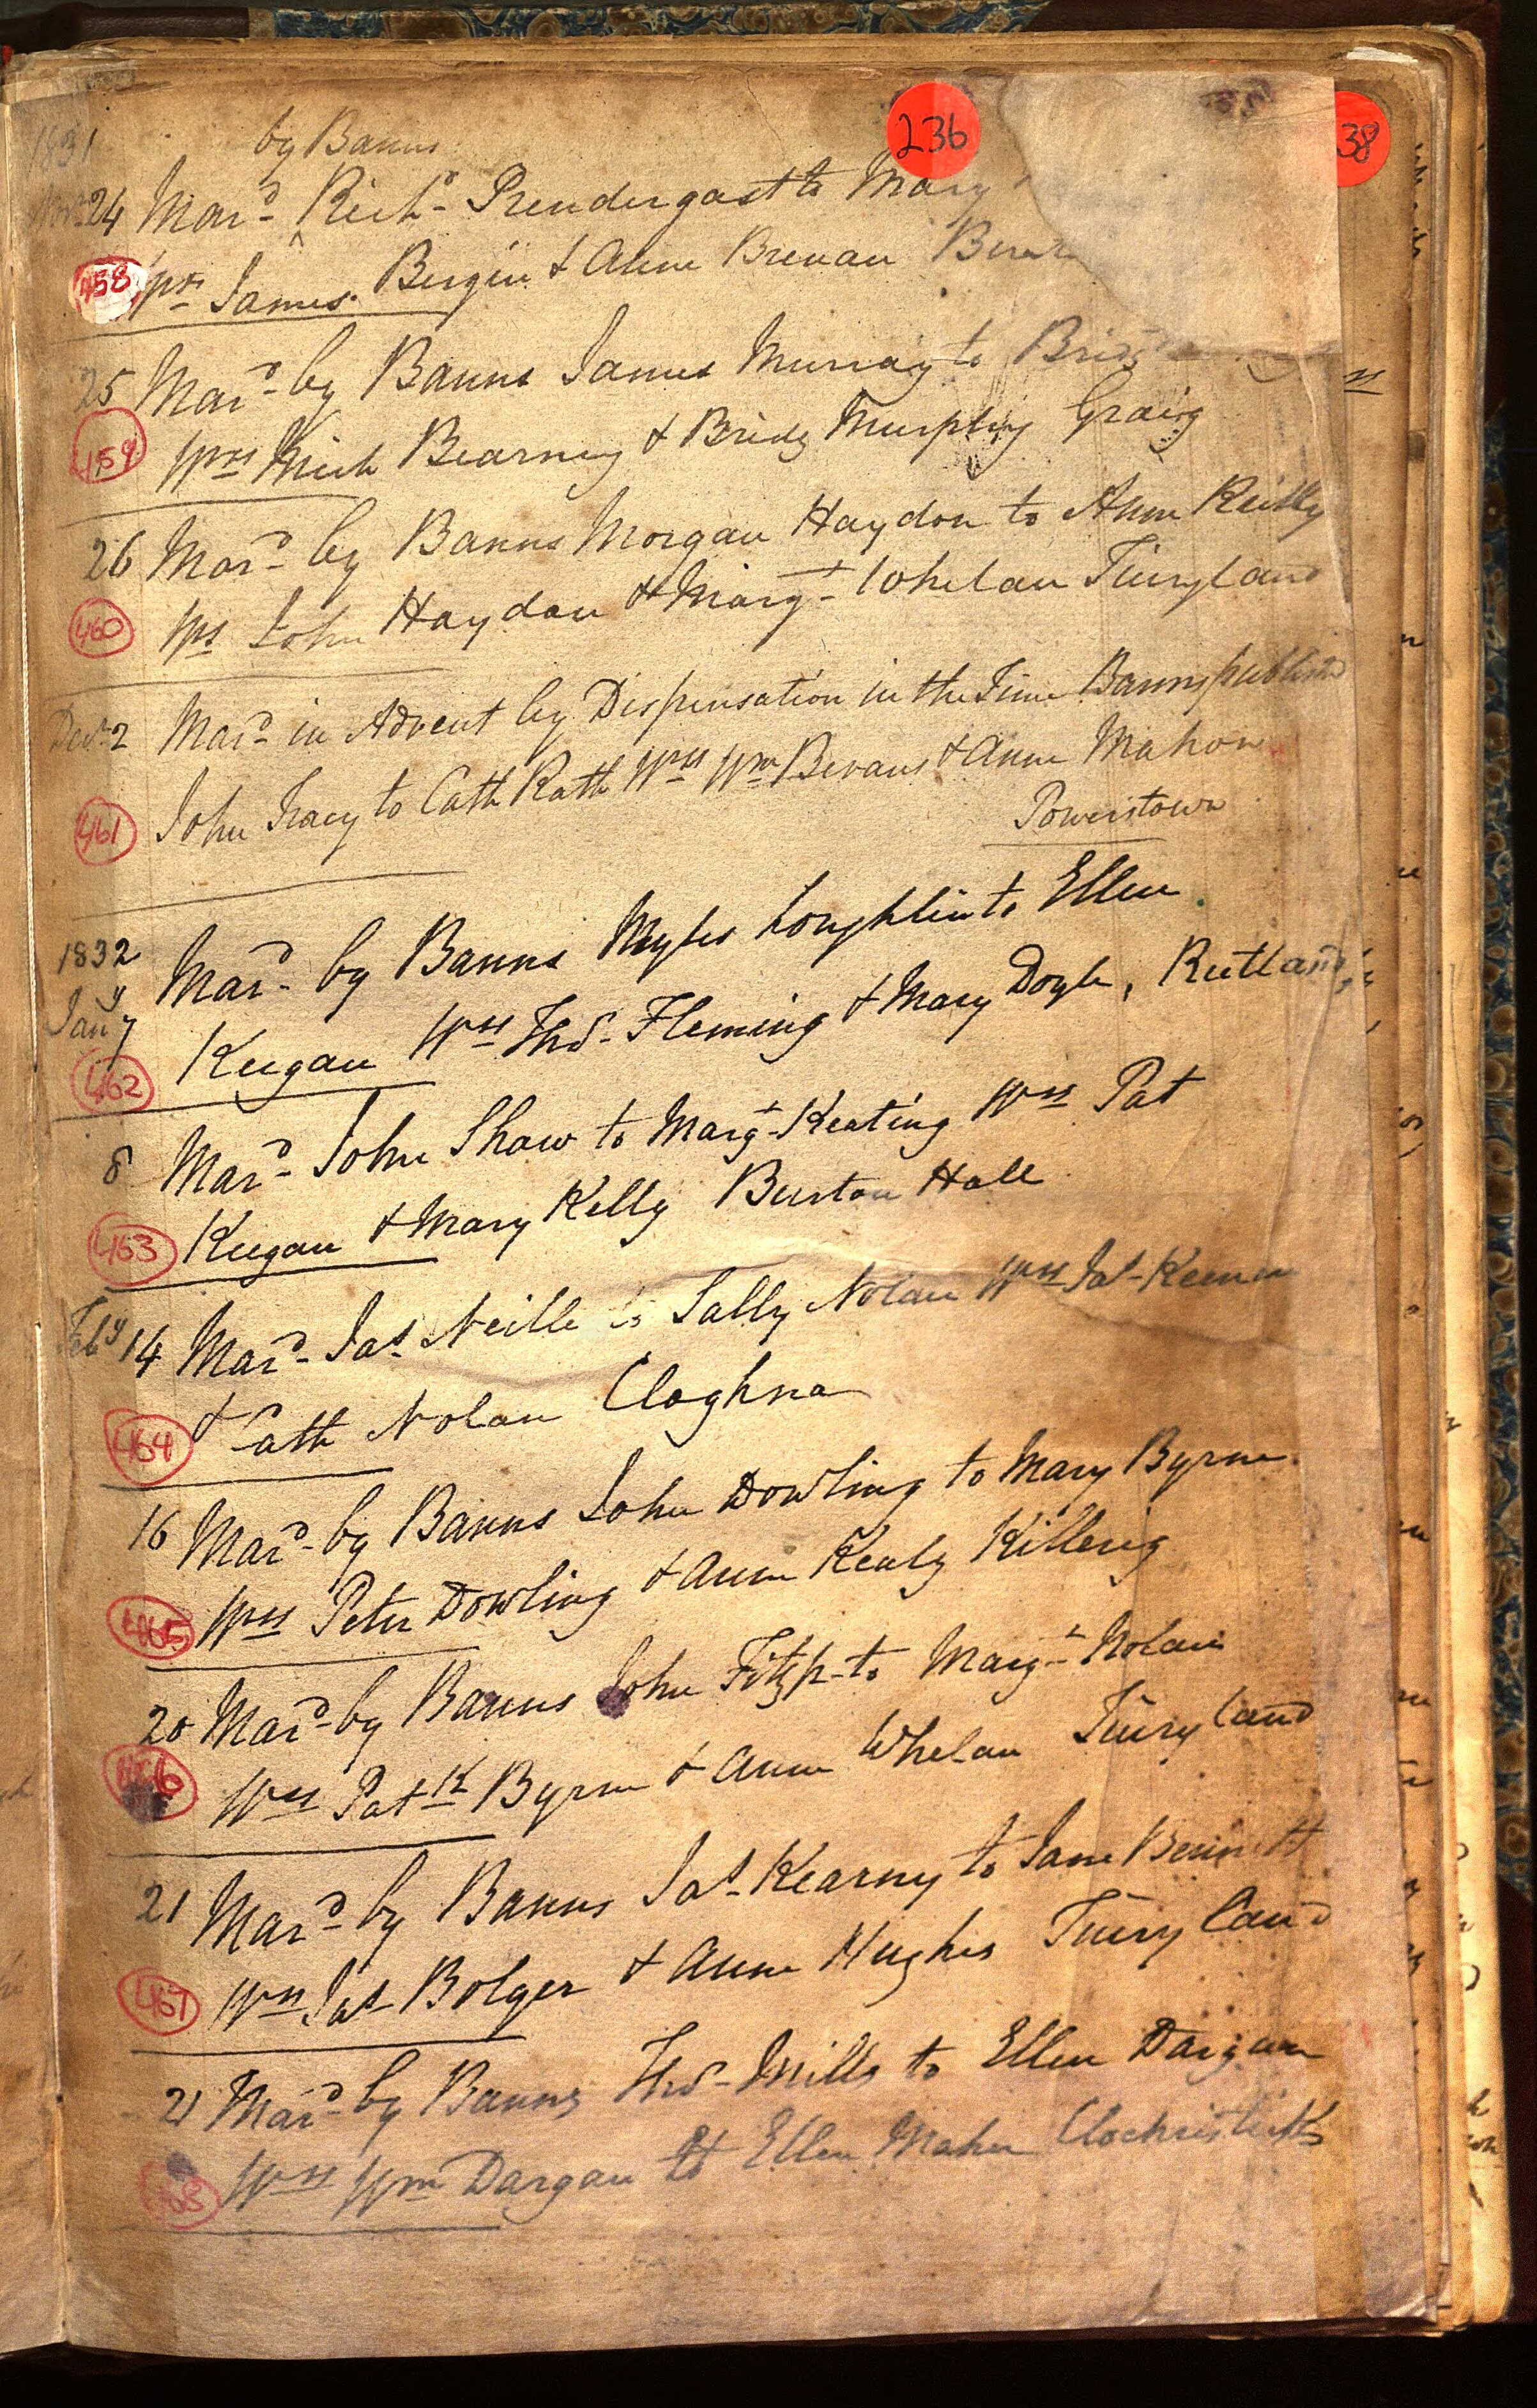 236
38
1831
by Banns
Novr 24 Mard Richd Prendergast to Mary
458 Wss James Bergin & Anne Brenan
25 Mard by Banns James Murray to
459 Wss Mich Kearney & Bridg Murphy Graig
26 Mard by Banns Morgan Haydon to Anne Reilly
460 Wss John Haydon & Margt Whelan Tinryland
Decr 2 Mard in Advent by Dispensation in the Time Banns published
461 John Tracy to Cath Rath Wss Wm Bevans & Anne Mahon
Powerstown
1832
Jany 7 Mard by Banns Myles Loughlin to Ellen
462 Keegan Wss Thos Fleming & Mary Doyle, Rutland
8 Mard John Shaw to Margt Keating Wss Pat
463 Keegan & Mary Kelly Burton Hall
Feby 14 Mard Jas Neille to Sally Nolan Wss Jas
464 & Cath Nolan Cloghna
16 Mard by Banns John Dowling to Mary Byrne
465 Wss Peter Dowling & Anne Kealy Killerig
20 Mard by Banns John Fitzp to Margt Nolan
466 Wss Patk Byrne & Anne Whelan Tinryland
21 Mard by Banns Jas Kearny to Jane Bennett
467 Wss Jas Bolger & Anne Hughes Tinryland
21 Mard by Banns Thos Mills to Ellen Dargan
468 Wss Wm Dargan & Ellen Maher